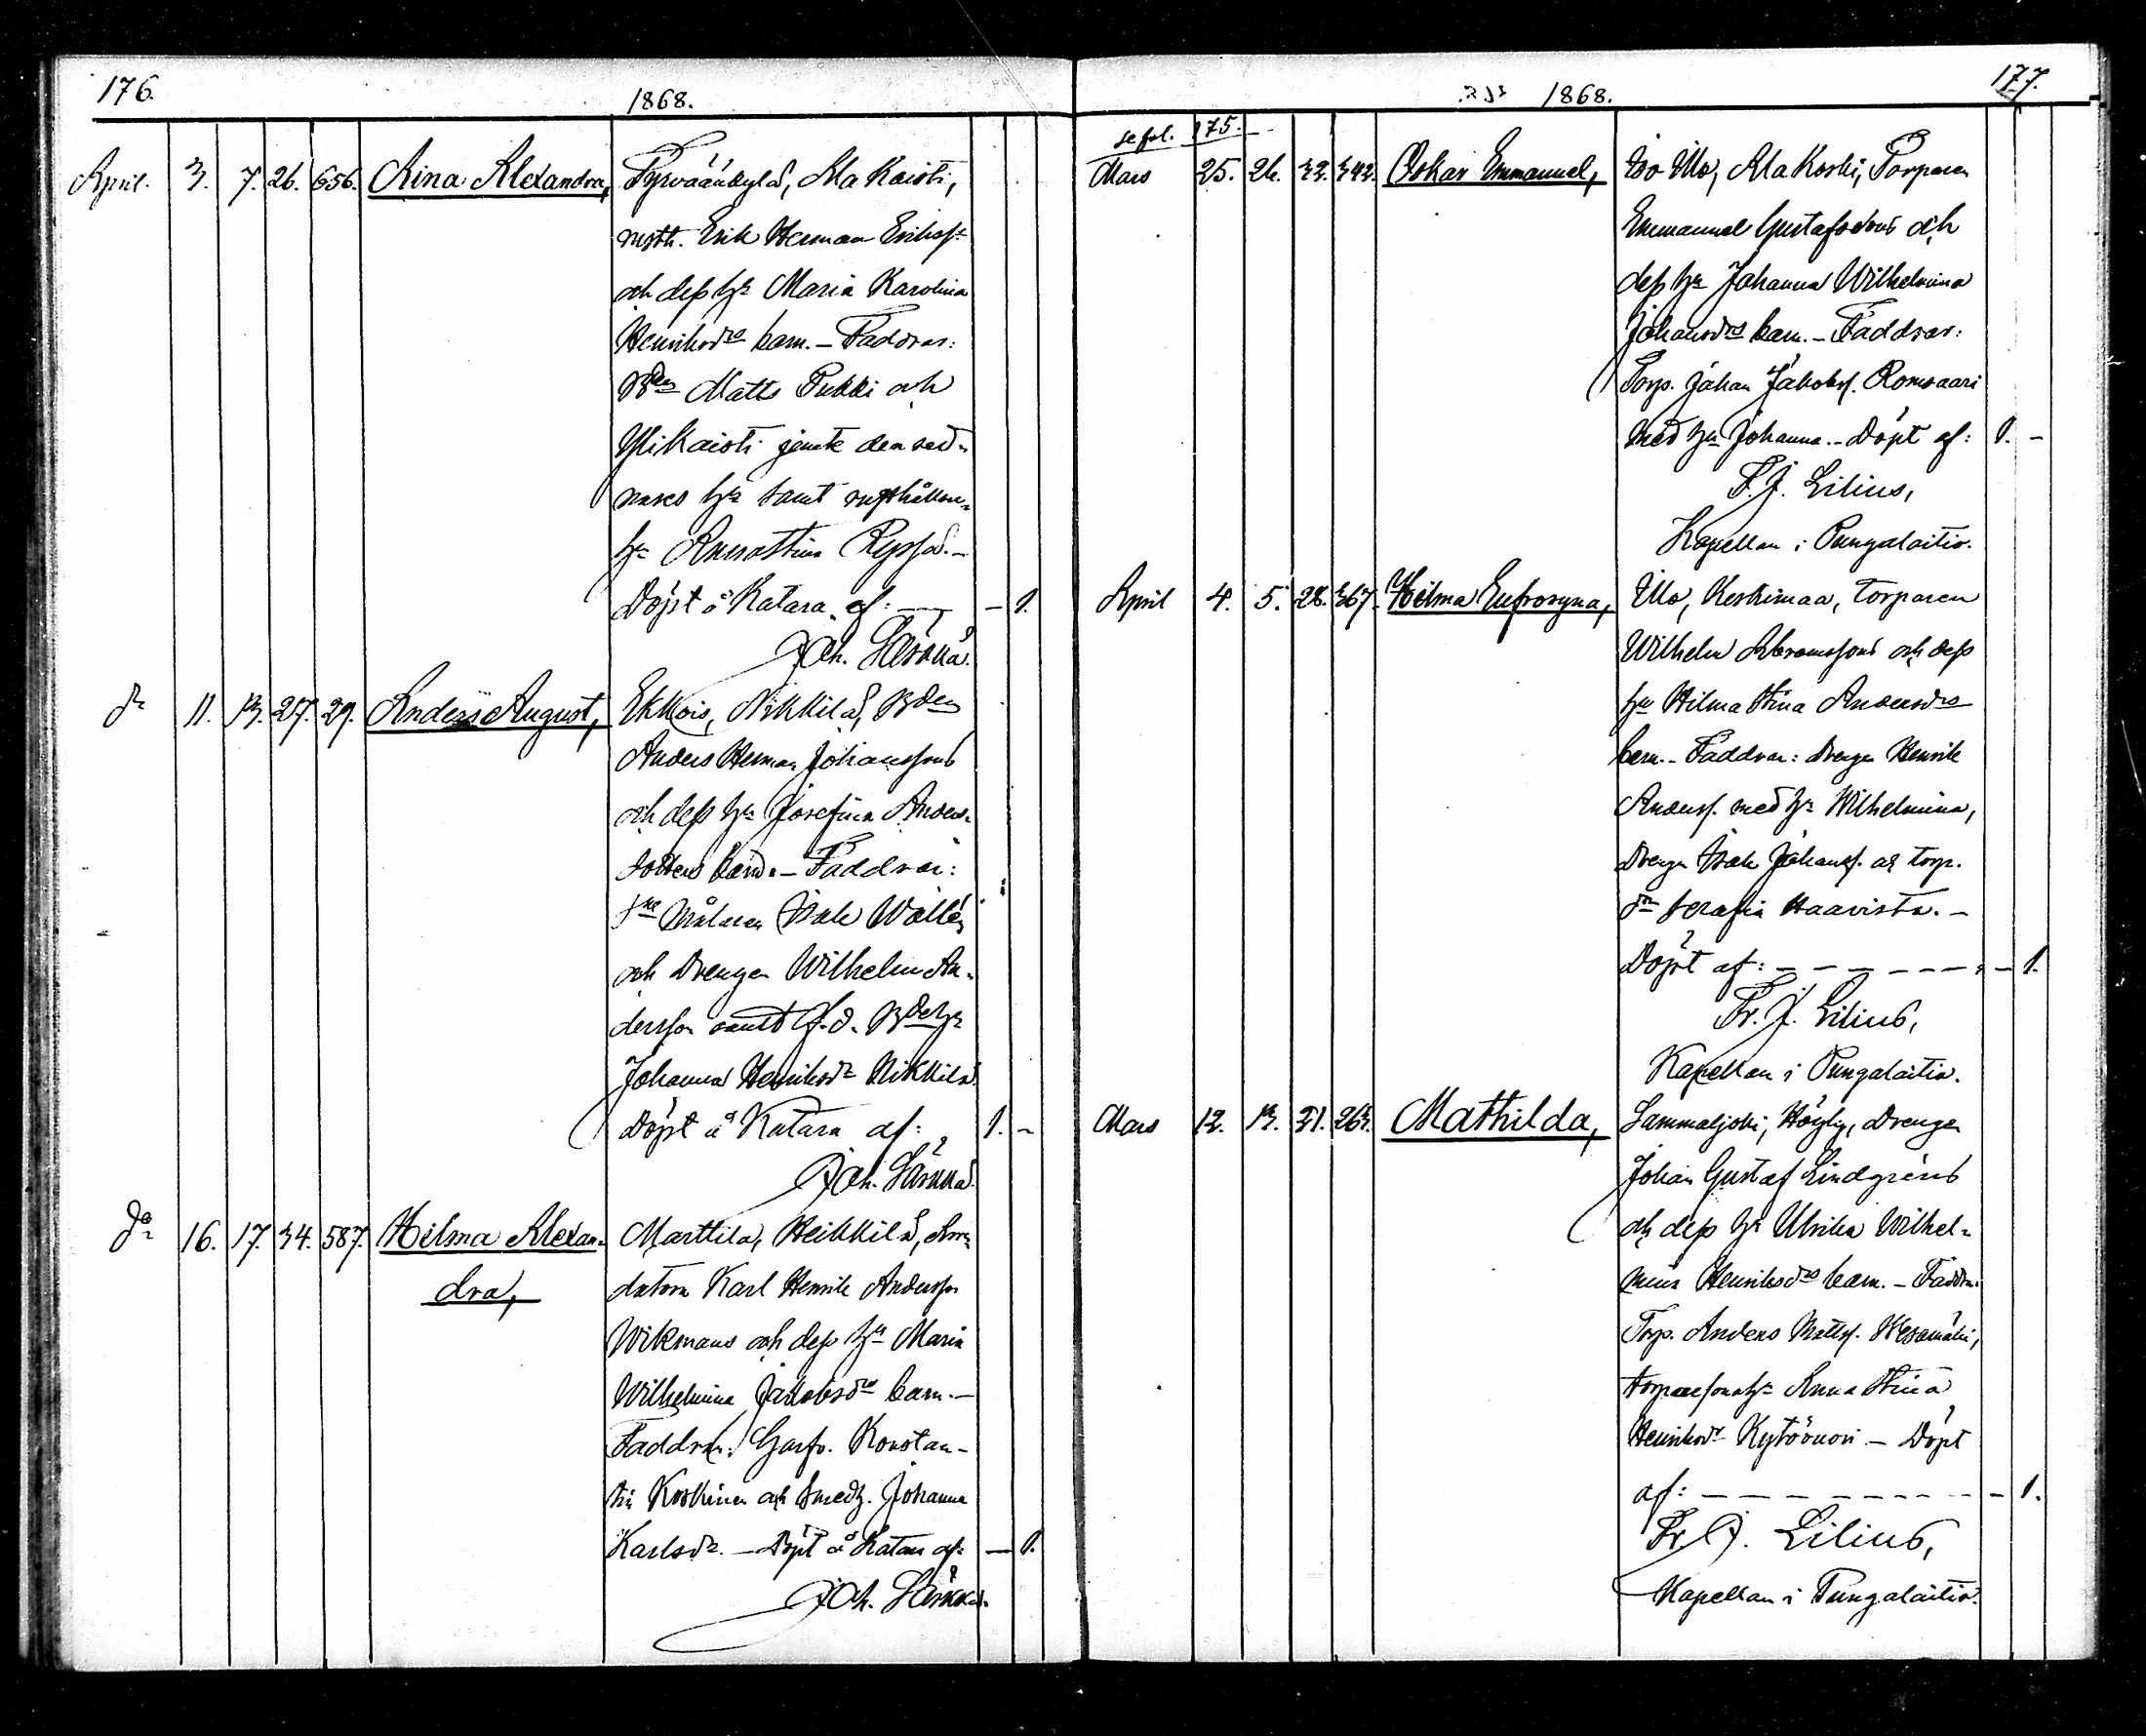 176.
1868.
April. 3. 7. 26. 656. Aina Alexandra, Tyrväänkylä, Ala Kaisti,
rusth. Erik Herman Erikss:
och dess h:u Maria Karolina
Henriksd:rs barn. – Faddrar:
B:den Matts Pukki och
Yli Kaisti jemte den sed-
nares h:u samt rusthållare-
h:u Annastina Ryssä. –
Döpt å Katara af: — – 1.
Joh. Särkkä.
d:o 11. 13. 27. 29. Anders August, Ekkois, Nikkilä, B:den
Anders Herman Johanssons
och dess h:u Josefina Anders-
dotters barn. – Faddrar:
Målaren Isak Wallén
och Drengen Wilhelm An-
dersson samt f.d. B:deh:u
Johanna Henriksd:r Nikkilä
Döpt å Katara af: 1. –
Joh. Särkkä.
d:o 16. 17. 34. 587. Hilma Alexan-
dra, Marttila, Heikkilä, Arren-
datorn Karl Henrik Andersson
Wikmans och dess h:u Maria
Wilhelmina Jakobsd:rs barn. –
Faddrar: Garfv. Konstan-
tin Koskinen och Smedh. Johanna
Karlsd:r. – Döpt å Katara af: — 1.
Joh. Särkkä.
177.
1868.
se fol. 175. –
Mars 25. 26. 32. 342. Oskar Emmanuel, Iso Illo, Ala Koski, Torparen
Emmanuel Gustafssons och
dess h:u Johanna Wilhelmina
Johansd:rs barn. – Faddrar:
Torp. Johan Jakobss. Romsaari
med h:u Johanna. – Döpt af: 1. –
F. J. Lilius,
Kapellan i Pungalaitio.
April 4. 5. 28. 367. Hilma Eufrosyna, Illo, Keskimaa, torparen
Wilhelm Abramssons och dess
h:u Hilma Stina Andersd:rs
barn. – Faddrar: drengen Henrik
Anderss. med h:u Wilhelmina,
drengen Isak Johanss. och torp.
d:r Serafia Haavisto. –
Döpt af: – – – – – – – – 1.
Fr. J. Lilius,
Kapellan i Pungalaitio.
Mars 12. 13. 31. 263. Mathilda, Sammaljoki, Drengen
Johan Gustaf Lindgréns
och dess h:u Ulrika Wilhel-
mina Henriksd:rs barn. – Faddrar:
Torp. Anders Mattss. Kesämäki,
torparesonsh:u Anna Stina
Henriksd:r Kytövuori – Döpt
af: – – – – – – – – – – 1.
Fr. J. Lilius,
Kapellan i Pungalaitio.